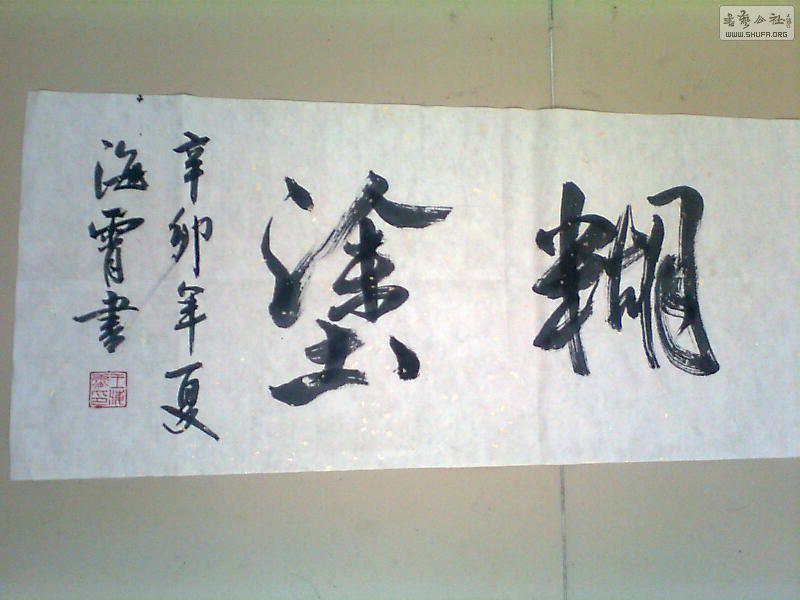 糊塗
辛卯年夏
海霄書
書藝公社
WWW.SHUFA.ORG